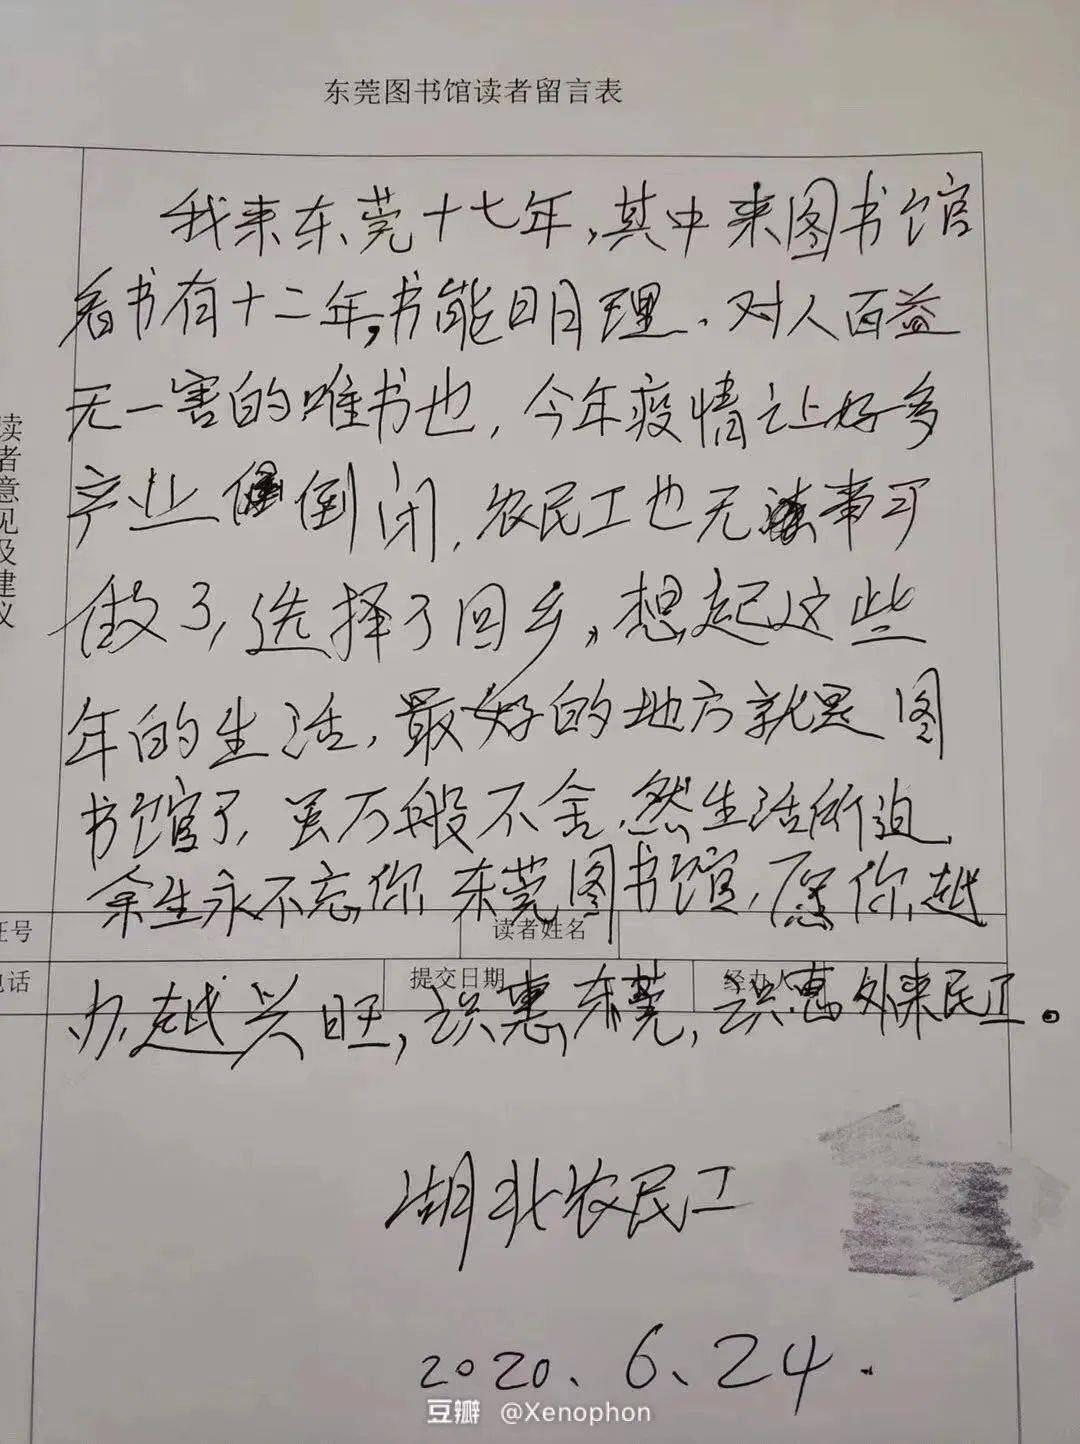 东莞图书馆读者留言表
读者意见及建议
我来东莞十七年,其中来图书馆
看书有十二年,书能明理、对人百益
无一害的唯书也,今年疫情让好多
产业倒闭,农民工也无事可
做了,选择了回乡。想起这些
年的生活,最好的地方就是图
书馆了,虽万般不舍,然生活所迫,
余生永不忘你,东莞图书馆,愿你越
证号
读者姓名
电话
提交日期
经办人
办越兴旺,识惠东莞,识惠外来民工。
湖北农民工
2020、6、24.
豆瓣 @Xenophon